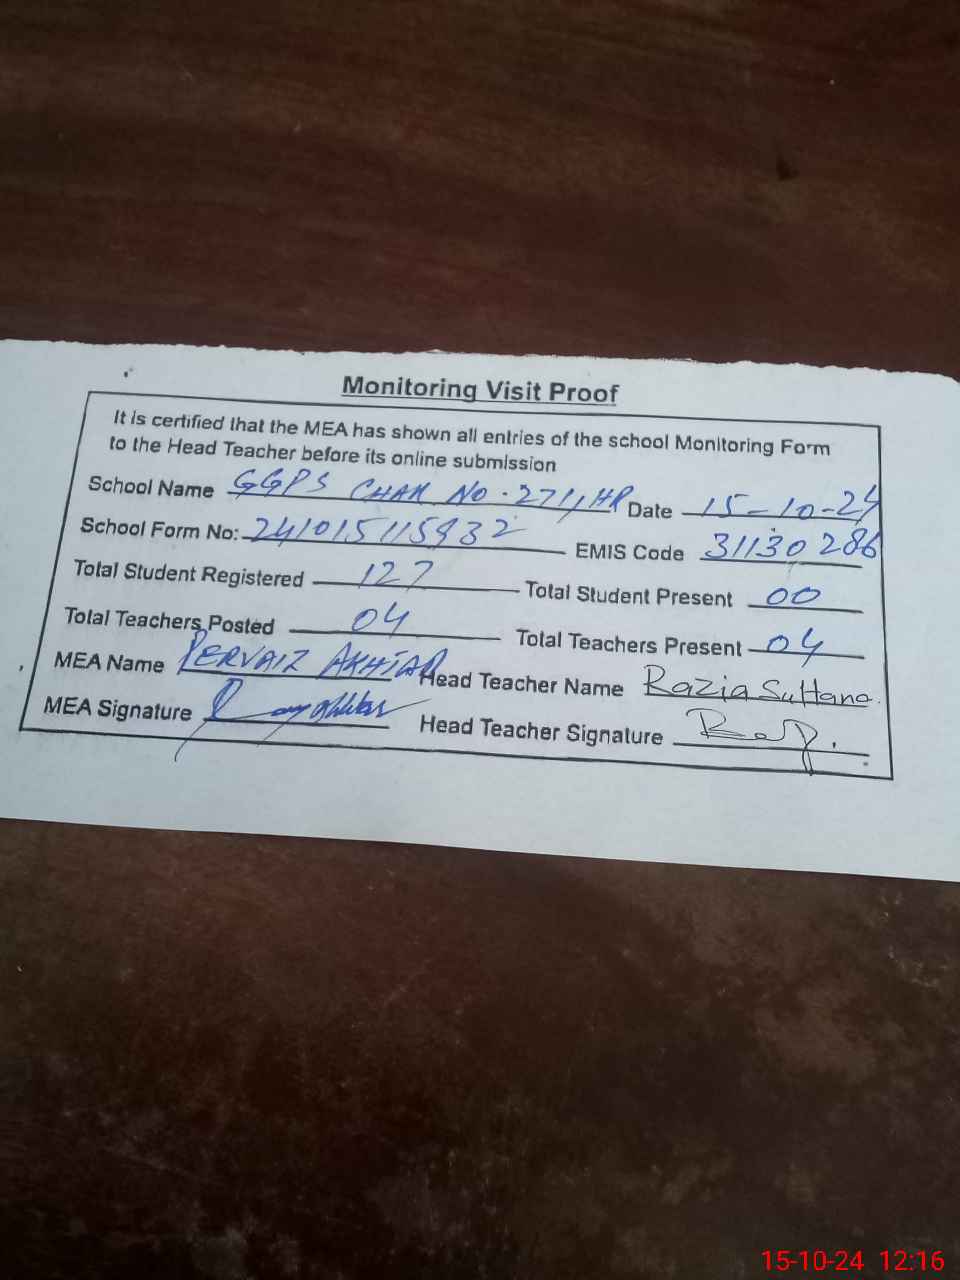 Monitoring Visit Proof
It is certified that the MEA has shown all entries of the school Monitoring Form
to the Head Teacher before its online submission
School Name GGPS CHAK NO. 271, HR Date 15-10-24
School Form No: 241015115932 EMIS Code 31130286
Total Student Registered 127 Total Student Present 00
Total Teachers Posted 04 Total Teachers Present 04
MEA Name PERVAIZ AKHTAR Head Teacher Name Razia Sultana
MEA Signature Head Teacher Signature
15-10-24 12:16